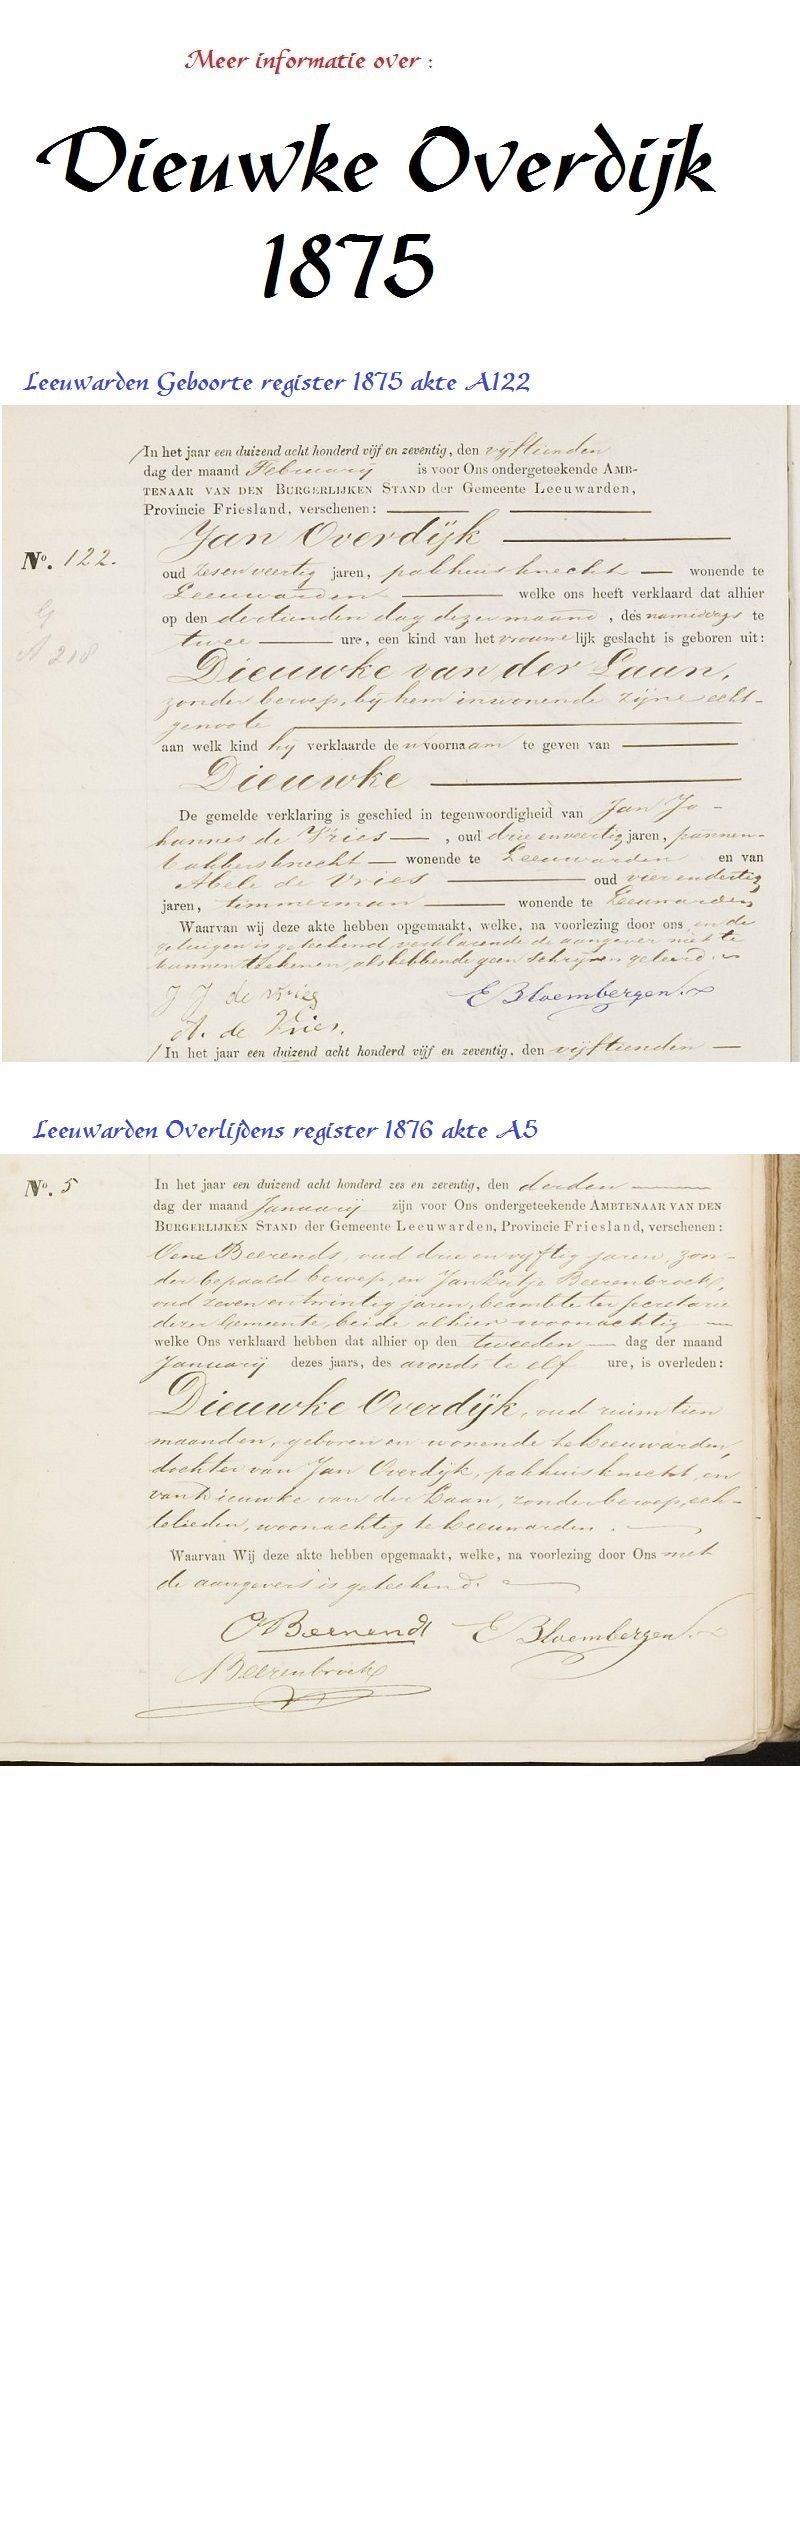 Meer informatie over :
Dieuwke Overdijk
1875
Leeuwarden Geboorte register 1875 akte A122
In het jaar een duizend acht honderd vijf en zeventig, den vijftienden
dag der maand Februarij is voor Ons ondergeteekende AMB-
TENAAR VAN DEN BURGERLIJKEN STAND der Gemeente Leeuwarden,
Provincie Friesland, verschenen:
Jan Overdijk
No. 122.
oud zesenveertig jaren, pakhuisknecht wonende te
Leeuwarden welke ons heeft verklaard dat alhier
op den dertienden dag dezer maand, des namiddags te
twee ure, een kind van het vrouwelijk geslacht is geboren uit:
A 218
Dieuwke van der Laan,
zonder beroep, bij hem inwonende zijne echt-
genoote
aan welk kind hij verklaarde den voornaam te geven van
Dieuwke
De gemelde verklaring is geschied in tegenwoordigheid van Jan Jo-
hannes de Vries, oud drie enveertig jaren, pannen-
bakkersknecht wonende te Leeuwarden en van
Abele de Vries oud vier endertig
jaren, timmerman wonende te Leeuwarden,
Waarvan wij deze akte hebben opgemaakt, welke, na voorlezing door ons en de
getuigen is geteekend, verklarende de aangever niet te
kunnen teekenen, als hebbende geen schrijven geleerd.
J J de Vries
E Bloembergen.
A. de Vries.
In het jaar een duizend acht honderd vijf en zeventig, den vijftienden
Leeuwarden Overlijdens register 1876 akte A5
No. 5
In het jaar een duizend acht honderd zes en zeventig, den derden
dag der maand Januarij zijn voor Ons ondergeteekende AMBTENAAR VAN DEN
BURGERLIJKEN STAND der Gemeente Leeuwarden, Provincie Friesland, verschenen:
Oene Beerends, oud drie en vijftig jaren, zon-
der bepaald beroep, en Jan Eeltje Beerenbroek,
oud zeven en twintig jaren, beambte ter secretarie
dezer Gemeente, beide alhier woonachtig
welke Ons verklaard hebben dat alhier op den tweeden dag der maand
Januarij dezes jaars, des avonds te elf ure, is overleden:
Dieuwke Overdijk, oud ruim tien
maanden, geboren en wonende te Leeuwarden,
dochter van Jan Overdijk, pakhuisknecht, en
van Dieuwke van der Laan, zonder beroep, ech-
telieden, woonachtig te Leeuwarden.
Waarvan Wij deze akte hebben opgemaakt, welke, na voorlezing door Ons met
de aangevers is geteekend.
O Beerends
E Bloembergen.
Beerenbroek